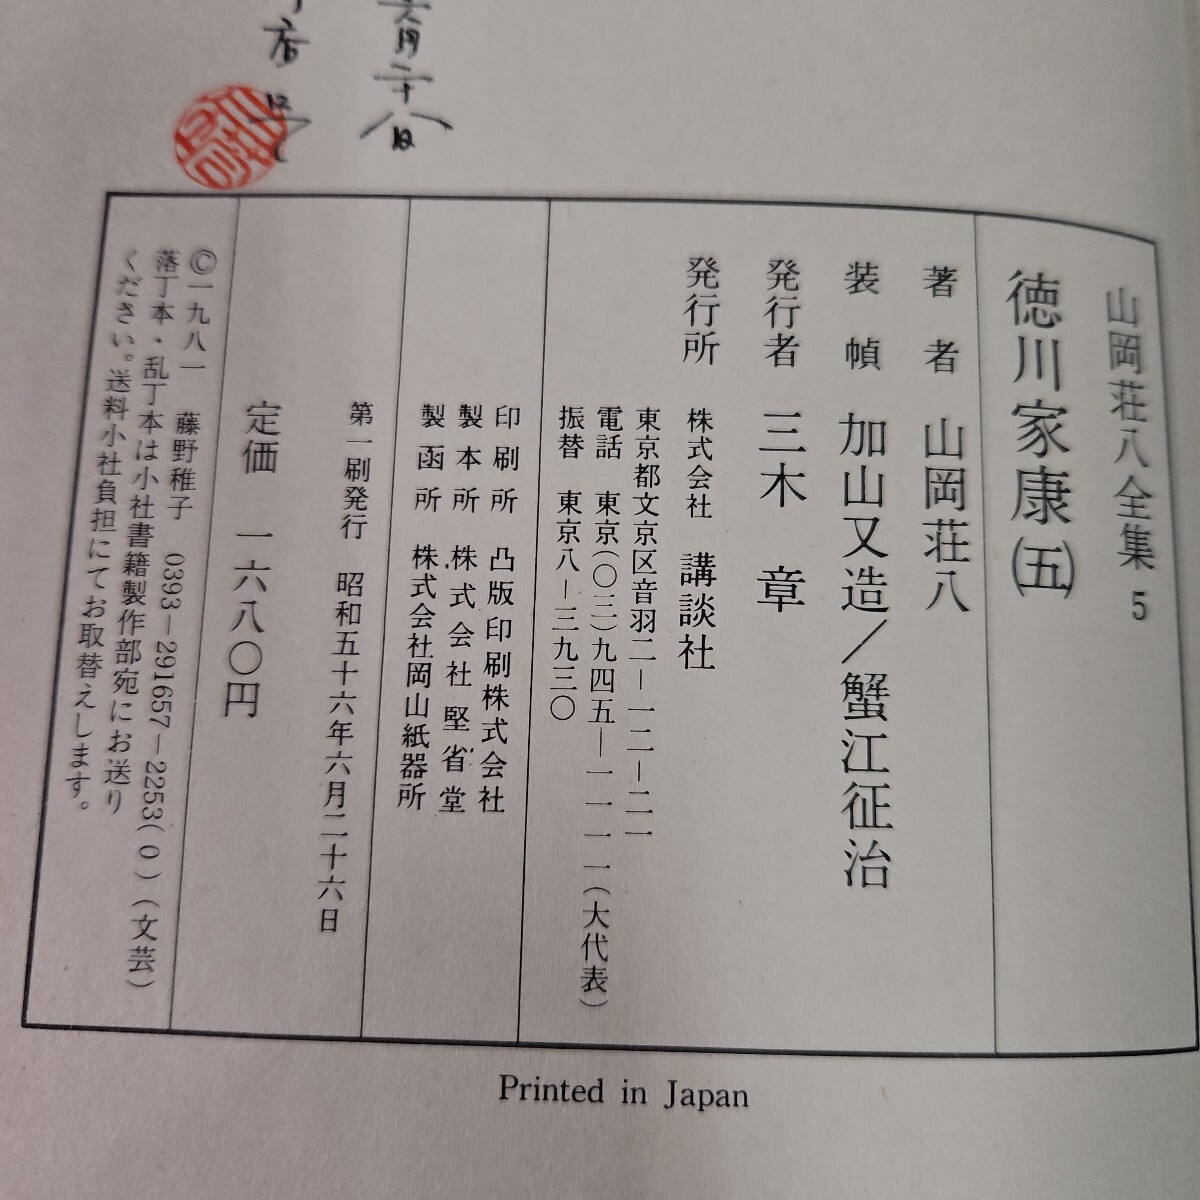 六月二十八日
山岡荘八全集 5
徳川家康(五)
著者 山岡荘八
装幀 加山又造/蟹江征治
発行者 三木 章
発行所 株式会社 講談社
東京都文京区音羽二-一二-二一
電話 東京(〇三)九四五-一一一一(大代表)
振替 東京八-三九三〇
印刷所 凸版印刷株式会社
製本所 株式会社堅省堂
製函所 株式会社岡山紙器所
第一刷発行 昭和五十六年六月二十六日
定価 一六八〇円
©一九八一 藤野稚子 0393-291657-2253(0)(文芸)
落丁本・乱丁本は小社書籍製作部宛にお送り
ください。送料小社負担にてお取替えします。
Printed in Japan